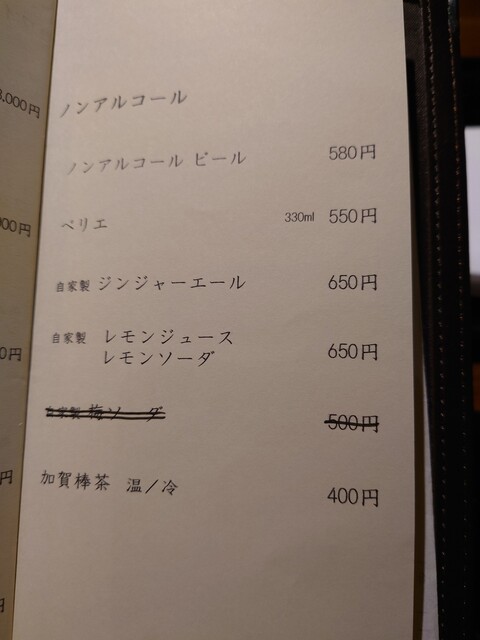 ノンアルコール
ノンアルコール ビール 580円
ペリエ 330ml 550円
自家製 ジンジャーエール 650円
自家製 レモンジュース
レモンソーダ 650円
自家製 梅ソーダ 500円
加賀棒茶 温/冷 400円
3,000円
00円
0円
円